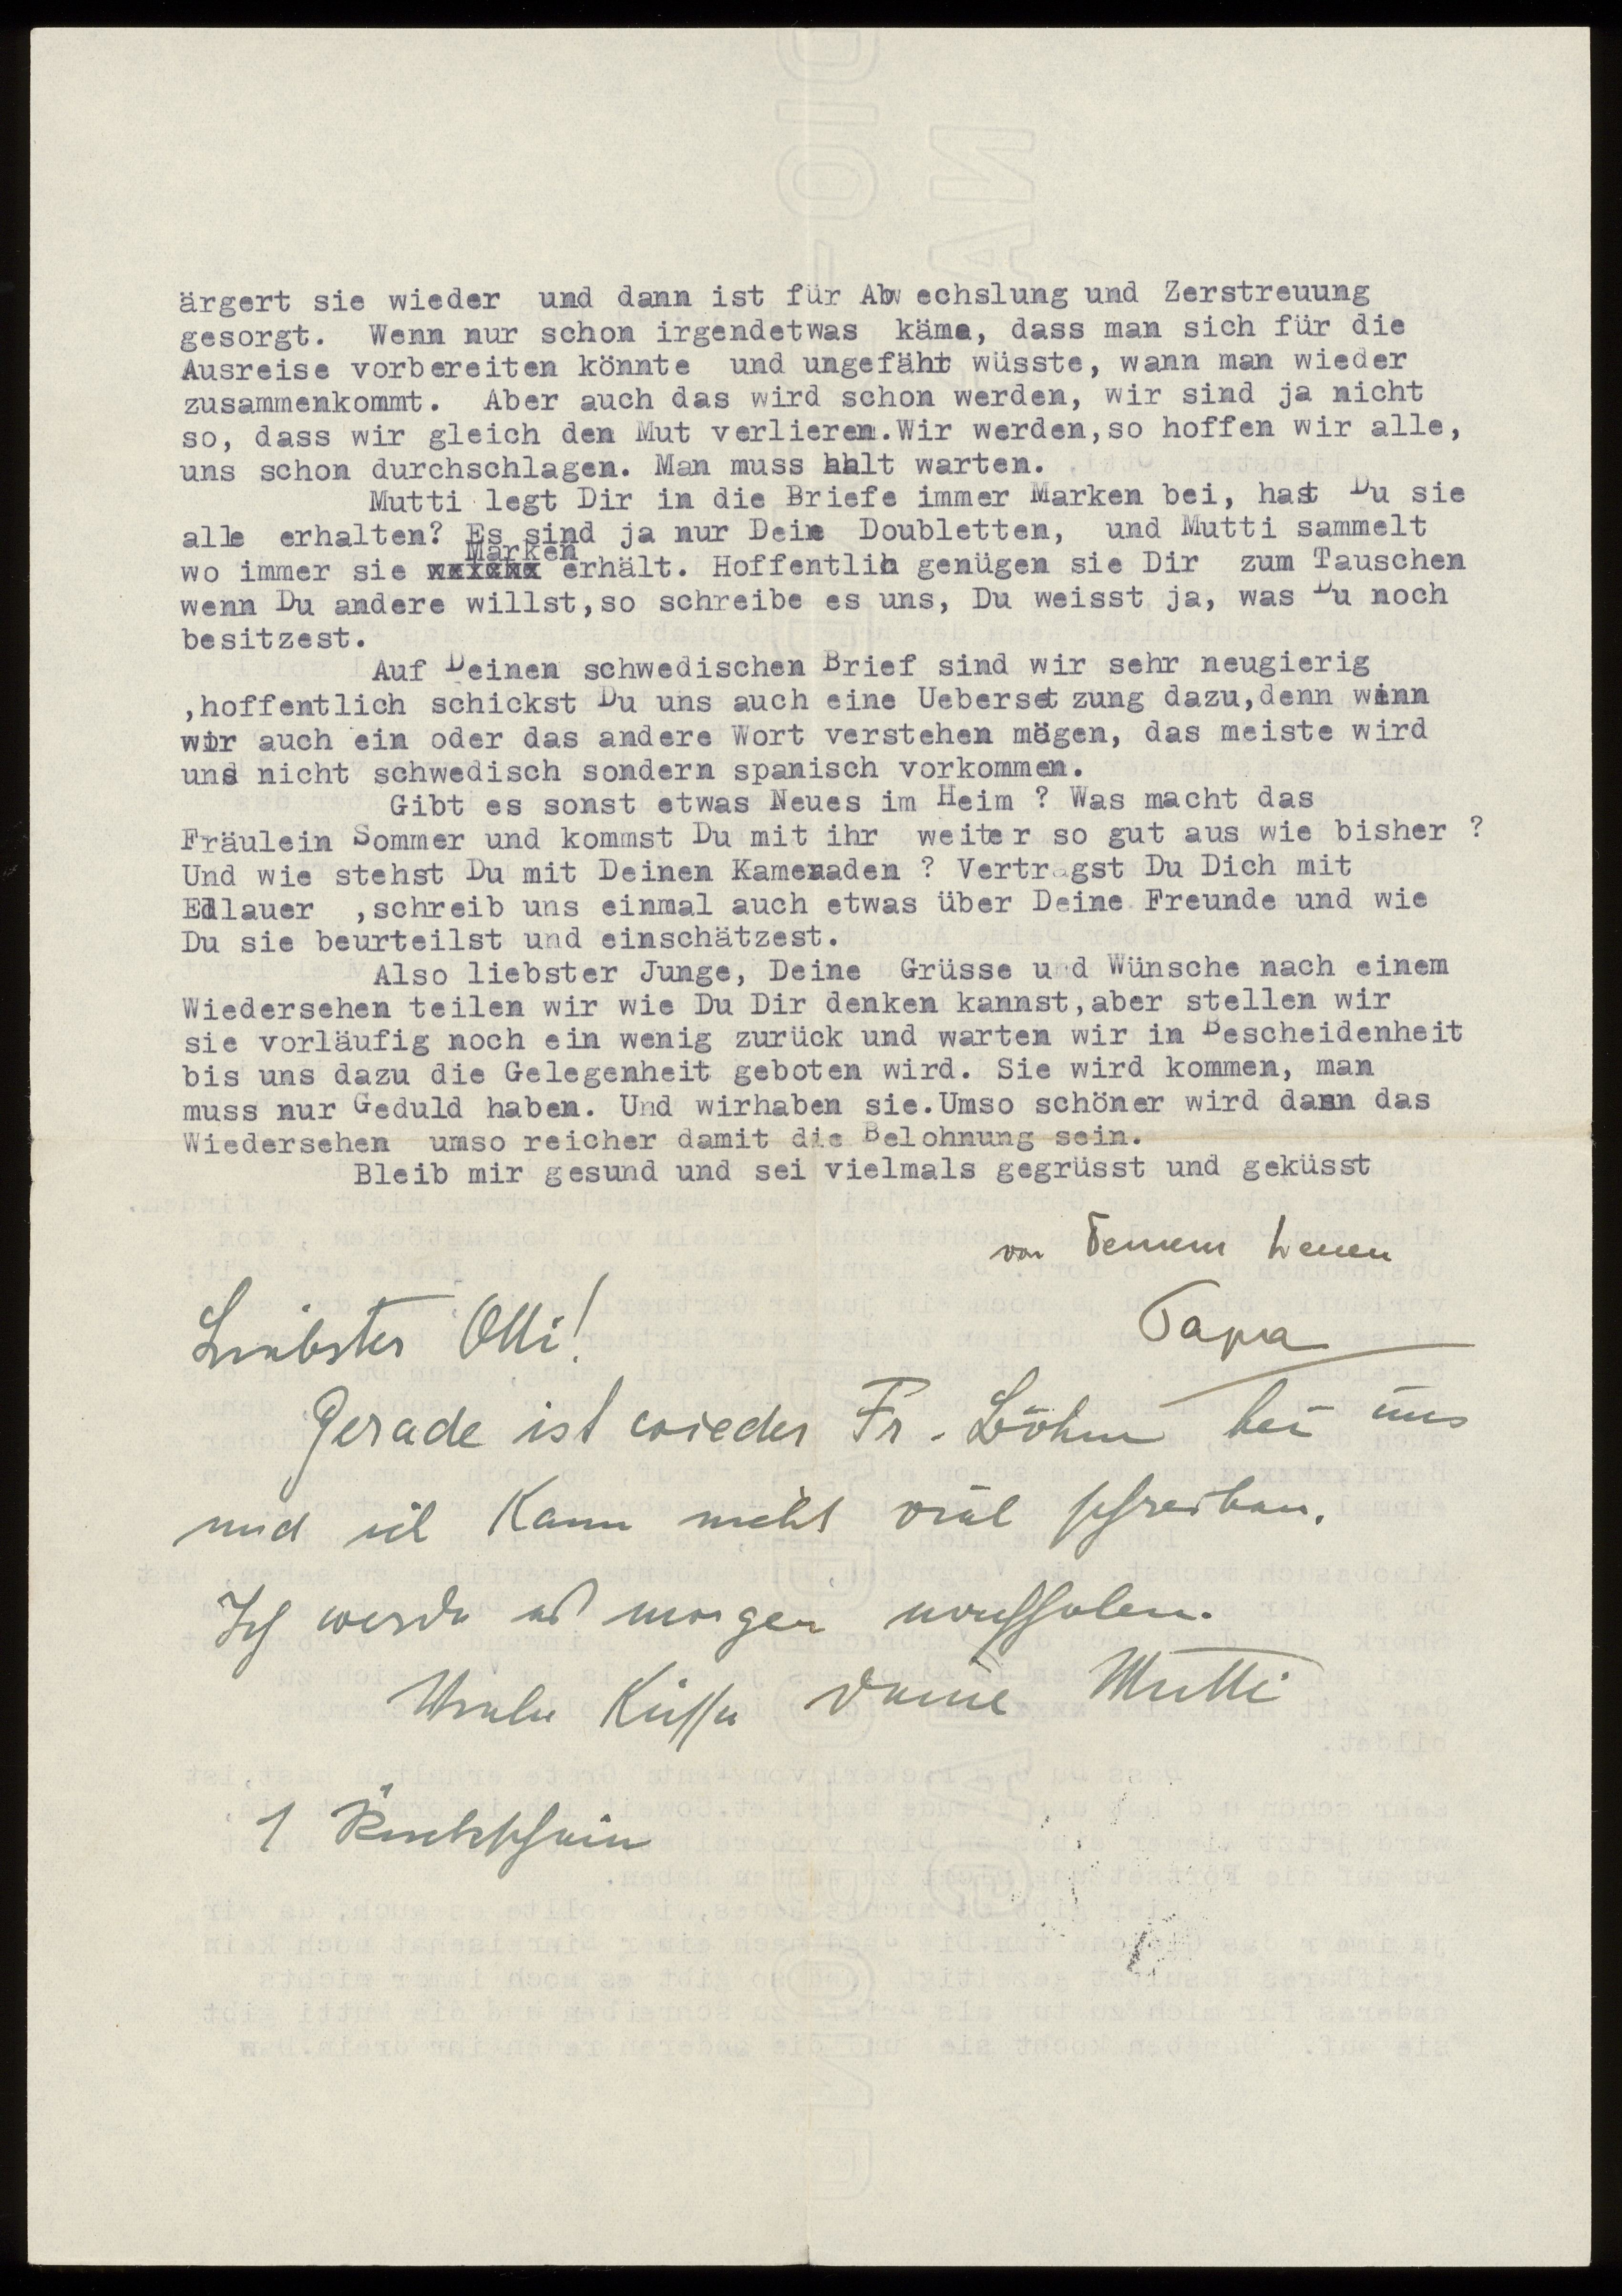 ärgert sie wieder und dann ist für Abwechslung und Zerstreuung
gesorgt. Wenn nur schon irgendetwas käme, dass man sich für die
Ausreise vorbereiten könnte und ungefähr wüsste, wann man wieder
zusammenkommt. Aber auch das wird schon werden, wir sind ja nicht
so, dass wir gleich den Mut verlieren.Wir werden,so hoffen wir alle,
uns schon durchschlagen. Man muss halt warten.
Mutti legt Dir in die Briefe immer Marken bei, hast Du sie
alle erhalten? Es sind ja nur Deine Doubletten, und Mutti sammelt
wo immer sie Marken erhält. Hoffentlich genügen sie Dir zum Tauschen
wenn Du andere willst,so schreibe es uns, Du weisst ja, was Du noch
besitzest.
Auf Deinen schwedischen Brief sind wir sehr neugierig
,hoffentlich schickst Du uns auch eine Uebersetzung dazu,denn wenn
wir auch ein oder das andere Wort verstehen mögen, das meiste wird
uns nicht schwedisch sondern spanisch vorkommen.
Gibt es sonst etwas Neues im Heim ? Was macht das
Fräulein Sommer und kommst Du mit ihr weiter so gut aus wie bisher ?
Und wie stehst Du mit Deinen Kameraden ? Vertragst Du Dich mit
Edlauer ,schreib uns einmal auch etwas über Deine Freunde und wie
Du sie beurteilst und einschätzest.
Also liebster Junge, Deine Grüsse und Wünsche nach einem
Wiedersehen teilen wir wie Du Dir denken kannst,aber stellen wir
sie vorläufig noch ein wenig zurück und warten wir in Bescheidenheit
bis uns dazu die Gelegenheit geboten wird. Sie wird kommen, man
muss nur Geduld haben. Und wirhaben sie.Umso schöner wird dann das
Wiedersehen umso reicher damit die Belohnung sein.
Bleib mir gesund und sei vielmals gegrüsst und geküsst
von Deinem treuen
Papa
Liebster Otti!
Gerade ist wieder Fr. Böhm bei uns
und ich kann nicht viel schreiben.
Ich werde es morgen nachholen.
Viele Küsse Deine Mutti
1 Rückschein